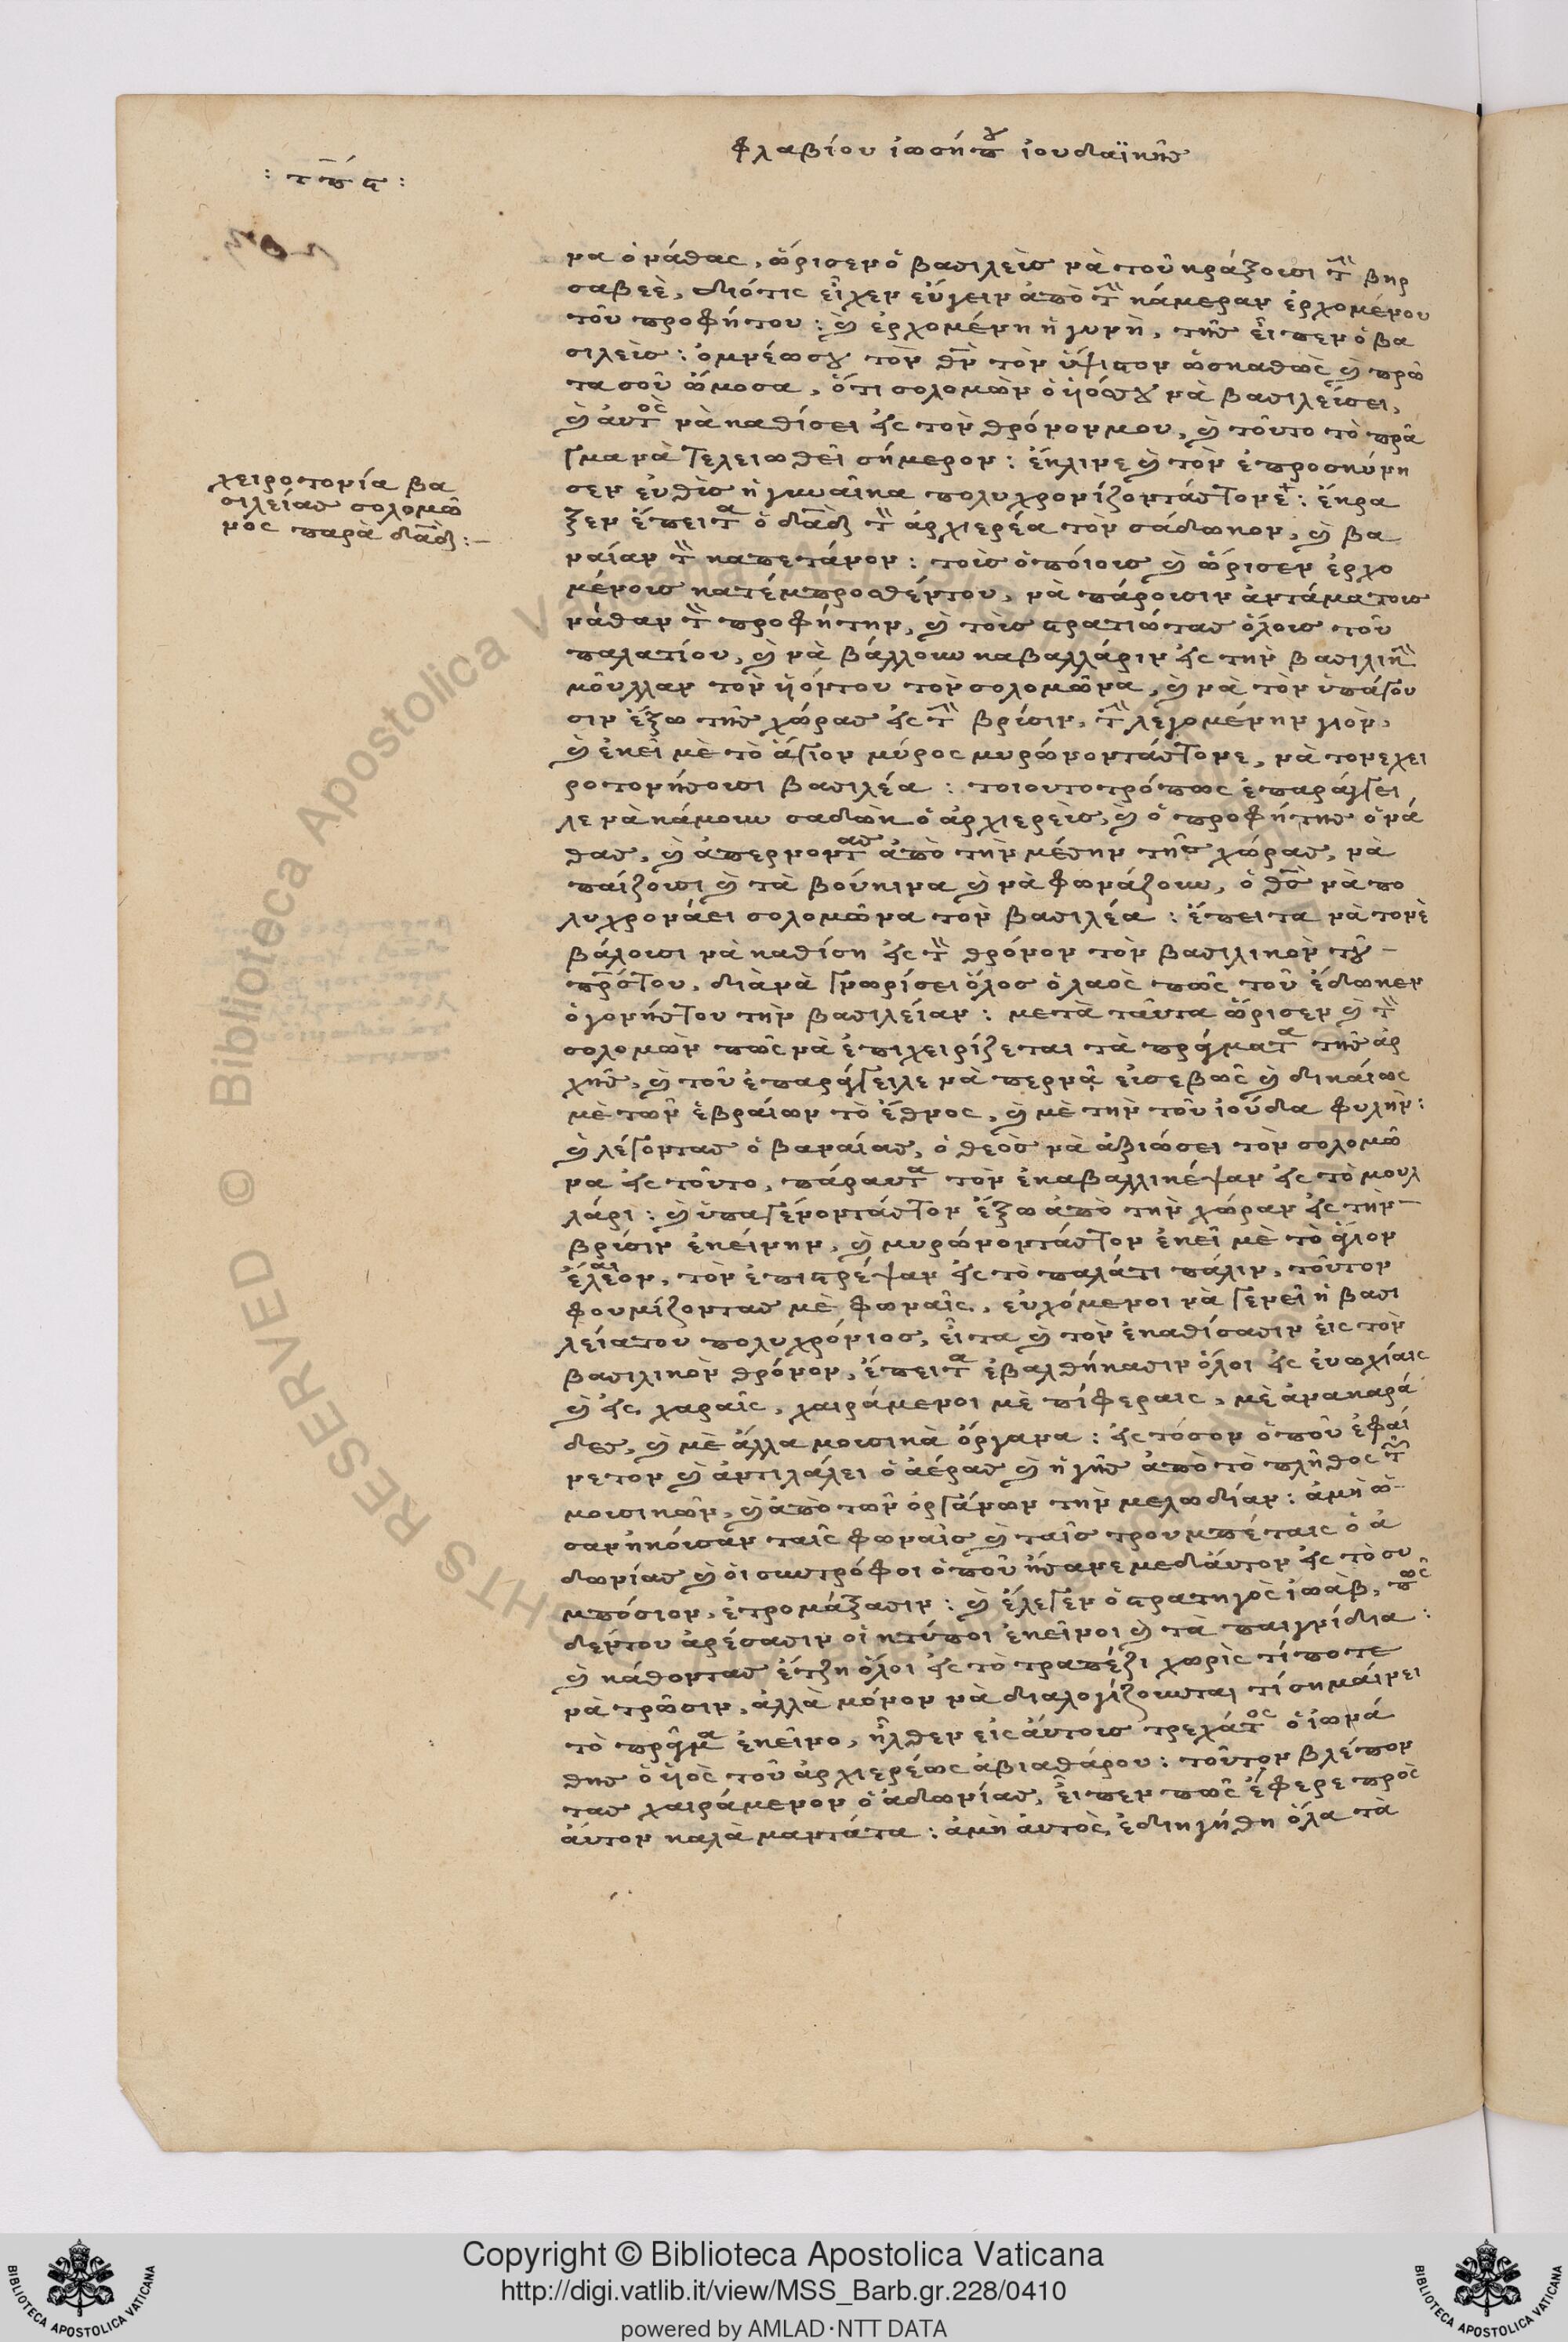 φλαβίου ἰωσήπου ἰουδαϊκῆς
: τπϛ :
να ὁ νάθας, ὥρισεν ὁ βασιλεὺς νὰ τοῦ κράξουσι τὴν βηρ
σαβεὲ, διότις εἶχεν εὔγειν ἀπὸ τὴν κάμεραν ἐρχομένου
τοῦ προφήτου : καὶ ἐρχομένη ἡ γυνὴ, τῆς εἶπεν ὁ βα
σιλεὺς : ὀμνέω σου τὸν θν τὸν ὕψιστον ὡσκαθὼς καὶ πρῶ
τα σοῦ ὤμοσα, ὅτι σολομὼν ὁ ὑιόσσου νὰ βασιλεύσει,
καὶ ἀυτὸς νὰ καθίσει εἰς τὸν θρόνον μου, καὶ τοῦτο τὸ πρᾶ
γμα νὰ τελειωθεῖ σήμερον : ἔκλινε καὶ τὸν ἐπροσκύνη
σεν ἐυθὺς ἡ γυναῖκα πολυχρονίζοντάς τονε : ἔκρα
ξεν ἔπειτα ὁ δαδ τὸν ἀρχιερέα τὸν σάδωκον, καὶ βα
ναίαν τὸν καπετάνον : τοὺς ὁποίους καὶ ὥρισεν ἐρχο
μένους κατέμπροσθέντου, νὰ πάρουσιν ἀντάματους
νάθαν τὸν προφήτην, καὶ τοὺς στρατιώτας ὅλους τοῦ
παλατίου, καὶ νὰ βάλλουν καβαλλάριν εἰς τὴν βασιλικὴν
μοῦλλαν τὸν ὑιόντου τὸν σολομῶνα, καὶ νὰ τὸν ὑπάγου
σιν ἔξω τῆς χώρας εἰς τὴν βρύσιν, τὴν λεγομένην γιὸν,
καὶ ἐκεῖ μὲ τὸ ἅγιον μύρος μυρώνοντάς τονε, νὰ τονε χει
ροτονήσουσι βασιλέα : τοιουτοτρόπως ἐπαράγγει
λε νὰ κάμουν σαδὼκ ὁ ἀρχιερεὺς, καὶ ὁ προφήτης ὁ νά
θας, καὶ ἀπερνοντας ἀπὸ τὴν μέσην τῆς χώρας, νὰ
παίζουσι καὶ τὰ βούκινα καὶ νὰ φωνάζουν, ὁ θς νὰ πο
λυχρονάει σολομῶνα τὸν βασιλέα : ἔπειτα νὰ τονὲ
βάλουσι νὰ καθίση εἰς τὸν θρόνον τὸν βασιλικὸν τοῦ
πρστου, διὰ νὰ γνωρίσει ὅλος ὁ λαὸς πῶς τοῦ ἔδωκεν
ὁ γονήςτου τὴν βασιλείαν : μετὰ ταῦτα ὥρισεν καὶ τὸν
σολομὼν πῶς νὰ ἐπιχειρίζεται τὰ πράγματα τῆς ἀρ
χῆς, καὶ τοῦ ἐπαράγγειλε νὰ περνᾶ εὐσεβῶς καὶ δικάιως
μὲ τῶν ἑβραίων τὸ ἔθνος, καὶ μὲ τὴν τοῦ ἰούδα φυλὴν :
καὶ λέγοντας ὁ βαναίας, ὁ θεὸς νὰ ἀξιώσει τὸν σολομῶ
να εἰς τοῦτο, πάραυτα τὸν ἐκαβαλλικέψαν εἰς τὸ μουλ
λάρι : καὶ ὑπαγένοντάς τον ἔξω ἀπὸ τὴν χώραν εἰς τὴν
βρύσιν ἐκείνην, καὶ μυρώνοντάς τον ἐκεῖ μὲ τὸ ἅγιον
ἔλαιον, τὸν ἐπιστρέψαν εἰς τὸ παλάτι πάλιν, τοῦτον
φουμίζοντας μὲ φωναῖς, εὐχόμενοι νὰ γενεῖ ἡ βασι
λείατου πολυχρόνιος, εἶτα καὶ τὸν ἐκαθίσασιν εἰς τὸν
βασιλικὸν θρόνον, ἔπειτα ἐβαλθήκασιν ὅλοι εἰς ἐυωχίαις
καὶ εἰς χαραῖς, χαιράμενοι μὲ πίφεραις, μὲ ἀνακαρά
δες, καὶ μὲ ἄλλα μουσικὰ ὄργανα : εἰς τόσον ὁποῦ ἐφαί
νετον καὶ ἀντιλάλει ὁ ἀέρας καὶ ἡ γῆς ἀπὸ τὸ πλῆθος τῶν
μουσικῶν, καὶ ἀπὸ τῶν ὀργάνων τὴν μελωδίαν : ἀμὴ ὡ
σαν ἠκόυσαν ταῖς φωναῖς καὶ ταῖς τρουμπέταις ὁ ἀ
δωνίας καὶ ὁι συντρόφοι ὁποῦ ἤσανε μεδάυτον εἰς τὸ συ
μπόσιον, ἐτρομάξασιν : καὶ ἔλεγεν ὁ στρατηγὸς ἰωὰβ, πῶς
δέντου ἀρέσασιν οἱ κτύποι ἐκεῖνοι καὶ τὰ παιγνίδια :
καὶ κάθονταςἔτζη ὅλοι εἰς τὸ τραπέζι χωρὶς τίποτε
νὰ τρῶσιν, ἀλλὰ μόνον νὰ διαλογίζουνται τί σημαίνει
τὸ πρᾶγμα ἐκεῖνο, ἦλθεν εἰς ἀύτους τρεχάτος ὁ ἰωνά
θης ὁ ὑιὸς τοῦ ἀρχιερέως ἀβιαθάρου : τοῦτον βλέπον
τας χαιράμενον ὁ ἀδωνίας, εἶπεν πῶς ἔφερε πρὸς
ἀύτον καλὰ μαντάτα : ἀμὴ ἀυτὸς, ἐδιηγήθη ὅλα τὰ
χειροτονία βα
σιλείας σολομῶ
νος παρὰ δαδ :-
Copyright © Biblioteca Apostolica Vaticana
http://digi.vatlib.it/view/MSS_Barb.gr.228/0410
powered by AMLAD·NTT DATA
BIBLIOTECA APOSTOLICA VATICANA
BIBLIOTECA APOSTOLICA VATICANA